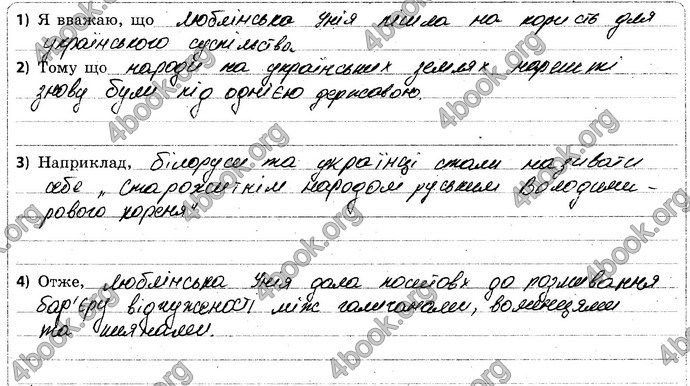 1) Я вважаю, що Люблінська Унія пішла на користь для
українського суспільства
2) Тому що народи на українських землях нарешті
знову були під однією державою.
3) Наприклад, білоруси та українці стали називати
себе „старожитнім народом руським Володими-
рового кореня"
4) Отже, Люблінська Унія дала поштовх до розмивання
бар'єру відчуженості між галичанами, волинцями
та киянами.
4book.org
4book.org
4book.org
4book.org
4book.org
4book.org
4book.org